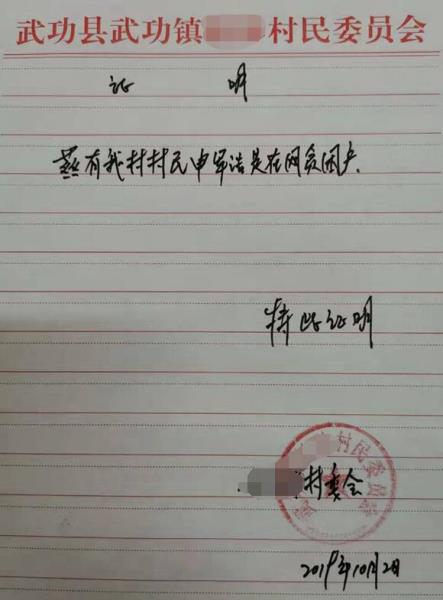 武功县武功镇 村民委员会
证 明
兹有我村村民申军浩是在网贫困户.
特此证明
村民委员会
村委会
2019年10月2日